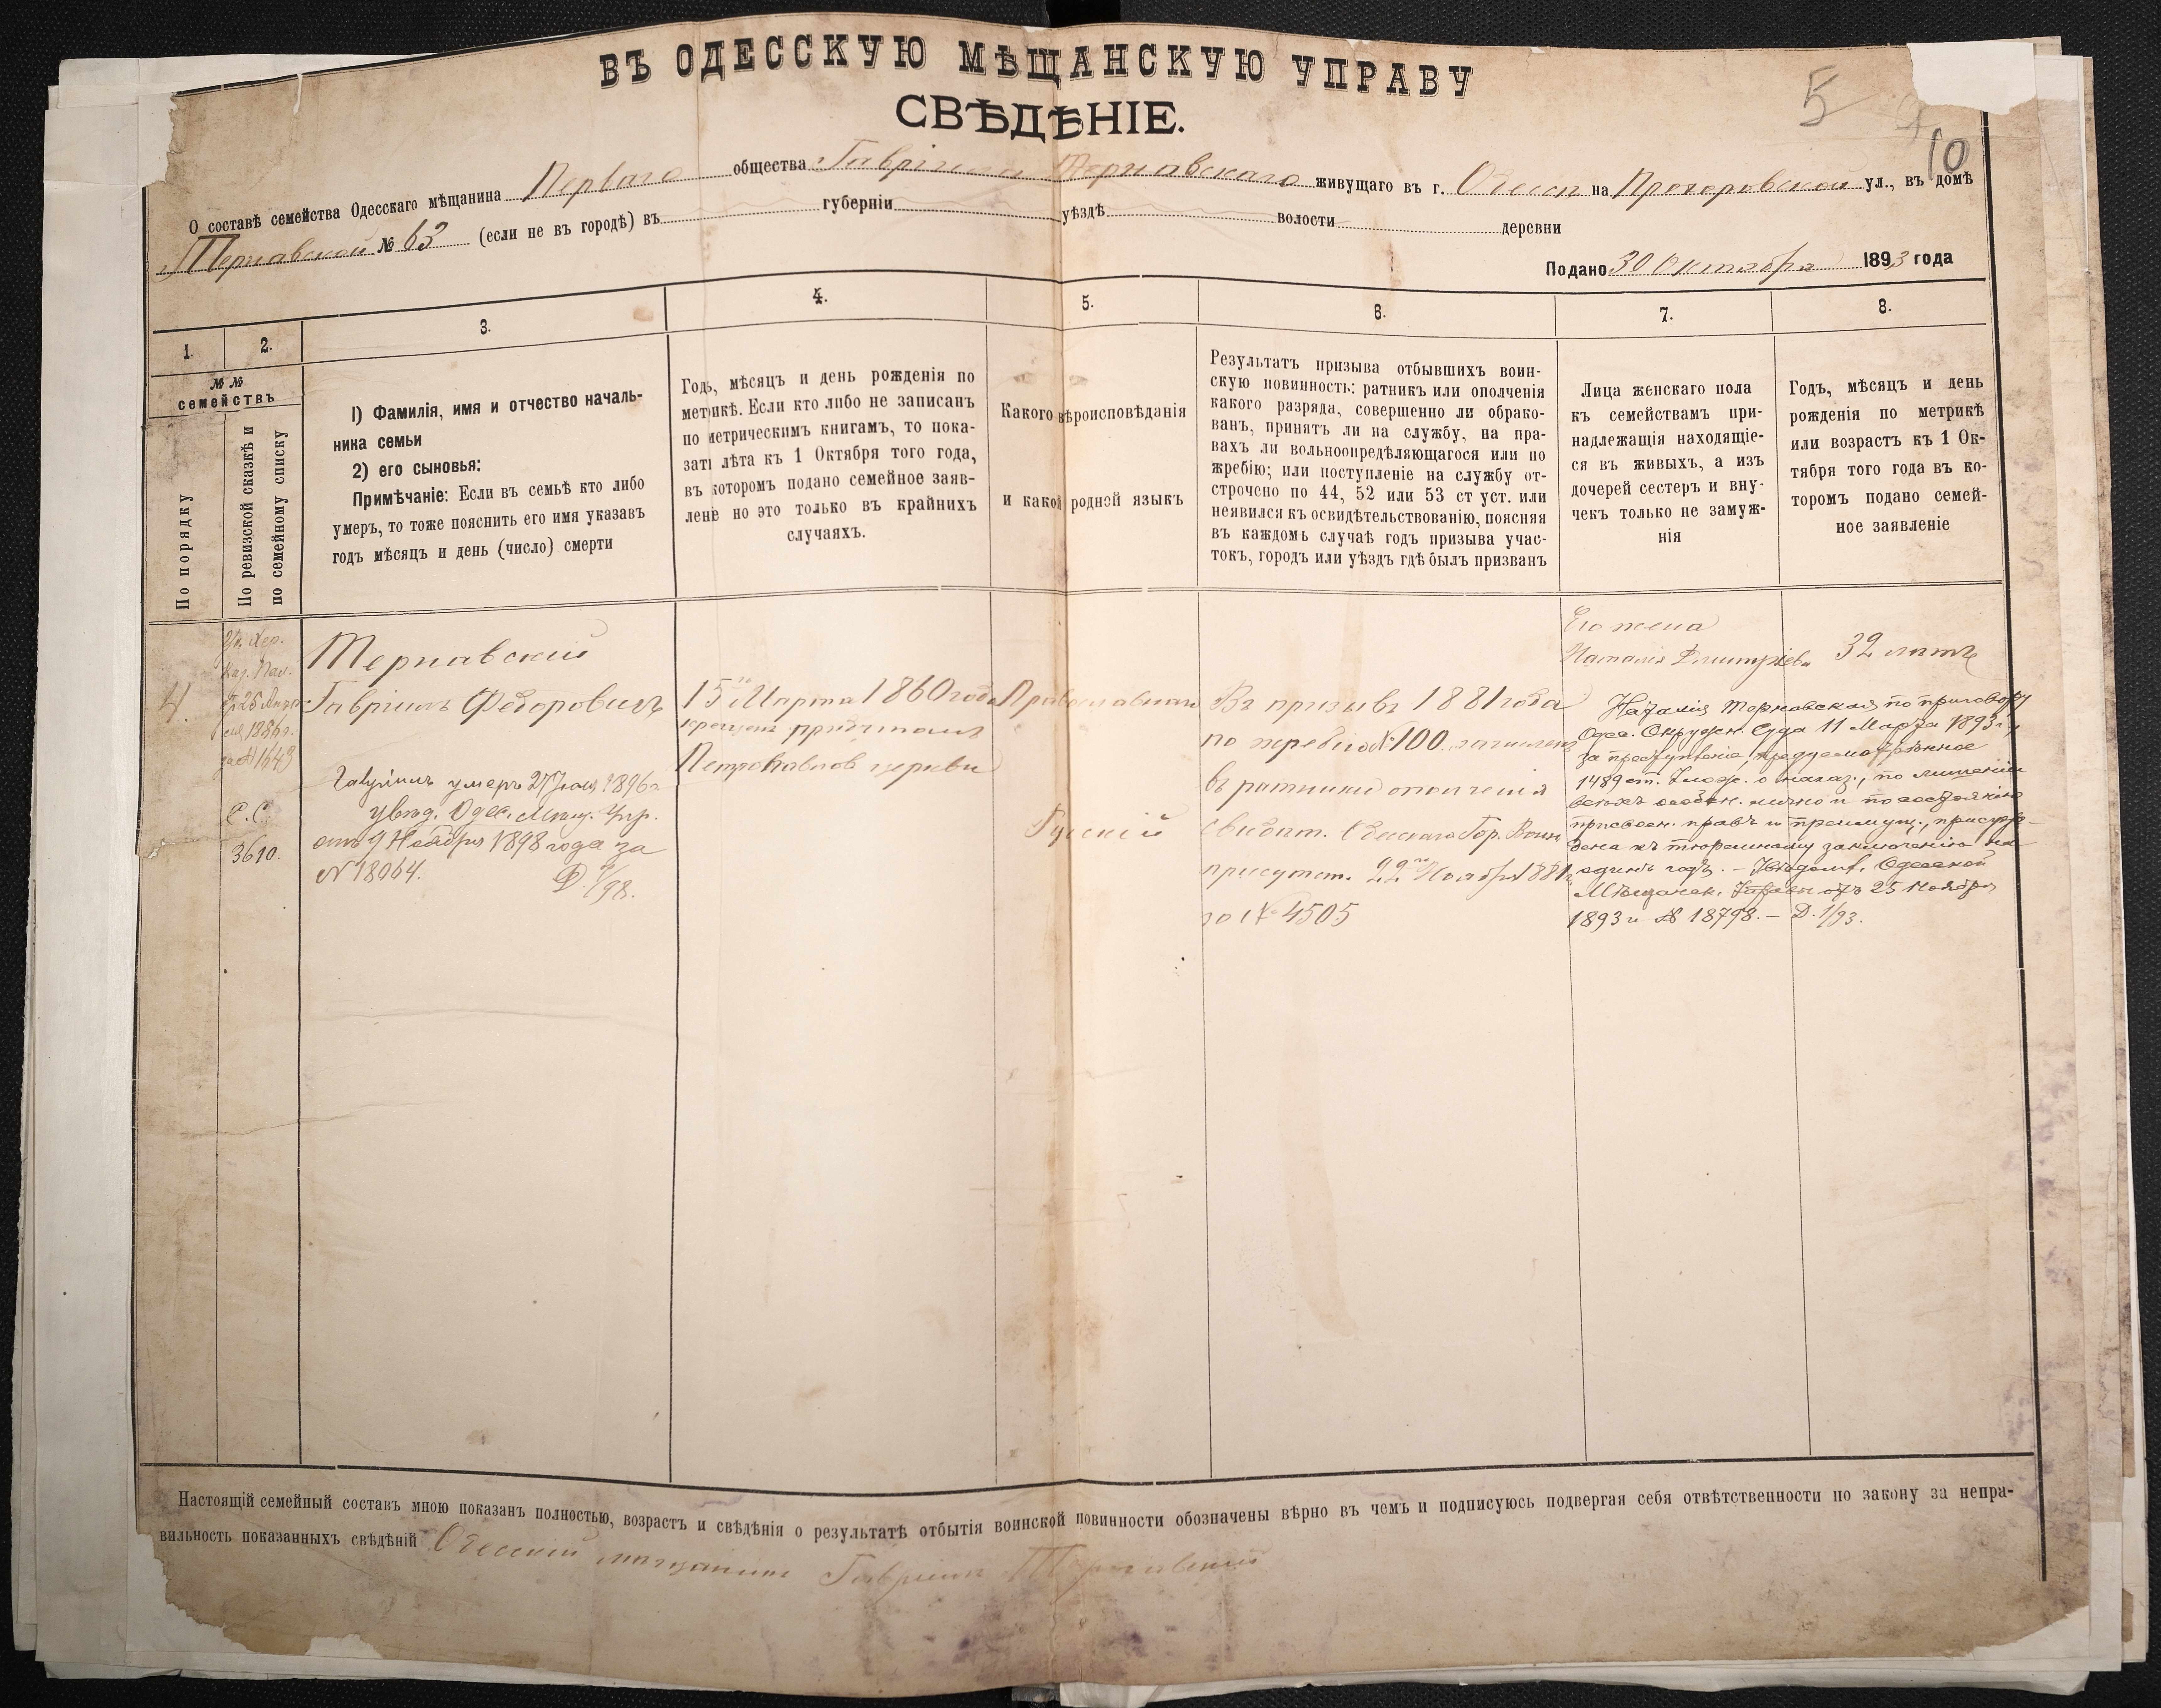 ВЪ ОДЕССКУЮ МѢЩАНСКУЮ УПРАВУ
СВѢДѢНІЕ.
5
10
О составѣ семейства Одесскаго мѣщанина Перваго общества Гавріила Тернавскаго живущаго въ г. Одессѣ на Прохоровской ул., въ домѣ
Тернавской № 63 (если не въ городѣ) въ губерніи уѣздѣ волости деревни
Подано 30 Октября 1893 года
1.
2.
3.
4.
5.
6.
7.
8.
№ №
семействъ
По порядку
По ревизской сказкѣ и
по семейному списку
1) Фамилія, имя и отчество началь-
ника семьи
2) его сыновья:
Примѣчаніе: Если въ семьѣ кто либо
умеръ, то тоже пояснить его имя указавъ
годъ мѣсяцъ и день (число) смерти
Годъ, мѣсяцъ и день рожденія по
метрикѣ. Если кто либо не записанъ
по метрическимъ книгамъ, то пока-
зать лѣта къ 1 Октября того года,
въ которомъ подано семейное заяв-
лене но это только въ крайнихъ
случаяхъ.
Какого вѣроисповѣданія
и какой родной языкъ
Результатъ призыва отбывшихъ воин-
скую повинность: ратникъ или ополченія
какого разряда, совершенно ли обрако-
ванъ, принятъ ли на службу, на пра-
вахъ ли вольноопредѣляющагося или по
жребію; или поступленіе на службу от-
строчено по 44, 52 или 53 ст уст. или
неявился къ освидѣтельствованію, поясняя
въ каждомъ случаѣ годъ призыва учас-
токъ, городъ или уѣздъ гдѣ былъ призванъ
Лица женскаго пола
къ семействамъ при-
надлежащія находящіе-
ся въ живыхъ, а изъ
дочерей сестеръ и вну-
чекъ только не замуж-
нія
Годъ, мѣсяцъ и день
рожденія по метрикѣ
или возрастъ къ 1 Ок-
тября того года въ ко-
торомъ подано семей-
ное заявленіе
4.
Ук. Хер.
Каз. Пал.
1886 г.
за № 1649
С. С.
3610.
Тернавскій
Гавріилъ Федоровичъ
Гавріилъ умеръ 27 1896 г
увѣд. Одес. Мѣщ. Упр.
отъ 9 Ноября 1898 года за
№ 18064.
Д. /98.
15го Марта 1860 года
крещенъ причтомъ
Петропавлов церкви
Православнаго
Русскій
Въ призывъ 1881 года
по жребію № 100 зачисленъ
въ ратники ополченія
Свидѣт. Одесскаго Гор. Воин
присутст. 22го Ноября 1881 г.
за № 4505
Его жена
Наталія Дмитріева
32 лѣтъ
Наталія Тернавская по приговору
Одес. Окружн. Суда 11 Марта 1893 г.,
за преступленіе, предусмотрѣнное
1489 ст. Улож. о наказ., по лишеніи
всѣхъ особен. лично и по состоянію
присвоен. правъ и преимущ., присуж-
дена къ тюремному заключенію на
одинъ годъ. – Увѣдомл. Одесской
Мѣщанск. Управы отъ 25 Ноября
1893 г № 18798. – Д. 1/93.
Настоящій семейный составъ мною показанъ полностью, возрастъ и свѣдѣнія о результатѣ отбытія воинской повинности обозначены вѣрно въ чемъ и подписуюсь подвергая себя отвѣтственности по закону за непра-
вильность показанныхъ свѣдѣній Одесскій мѣщанинъ Гавріилъ Тернавскій